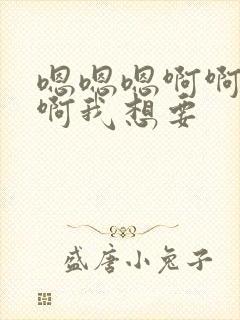 嗯嗯嗯啊啊
啊我想要
盛唐小兔子